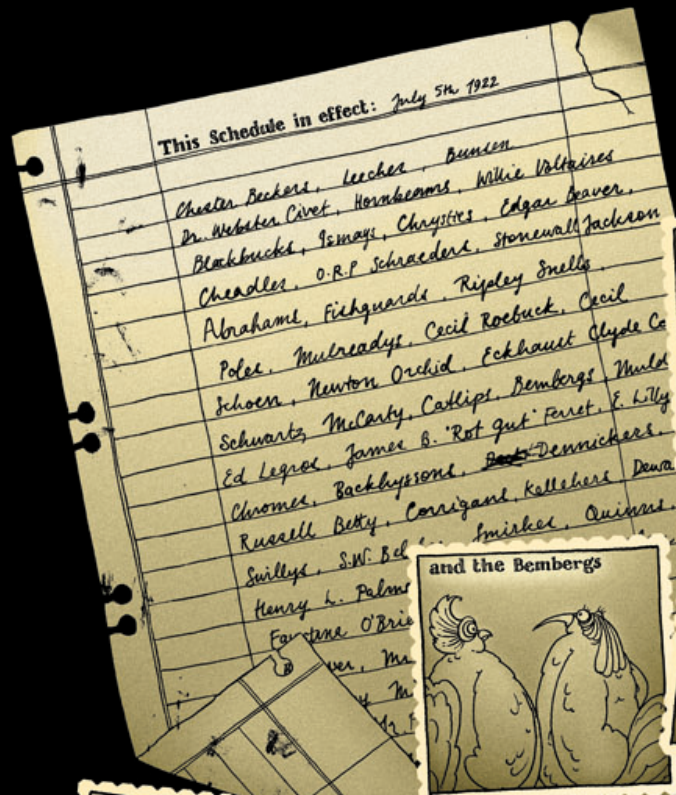 This Schedule in effect: July 5th 1922
Chester Beckers, Leeches, Bunsen
Dr. Webster Civet, Hornbeams, Willie Voltaires
Blackbucks, Ismays, Chrysties, Edgar Beaver,
Cheadles, O.R.P Schraeders, Stonewall Jackson
Abrahams, Fishguards, Ripley Snells,
Poles, Mulreadys, Cecil Roebuck, Cecil
Schoen, Newton Orchid, Eckhaust, Clyde Co
Schwartz, McCarty, Catlips, Bembergs, Muld
Ed Legros, James B. "Rot gut" Ferret, E. Lilly
Chromes, Backhyssons, Dennickers,
Russell Betty, Corrigans, Kellehers, Dewa
Swillys, S.W. Bel Smirkes, Quinns,
Henry L. Palm
Faustine O'Brie
ver, M
M
and the Bembergs